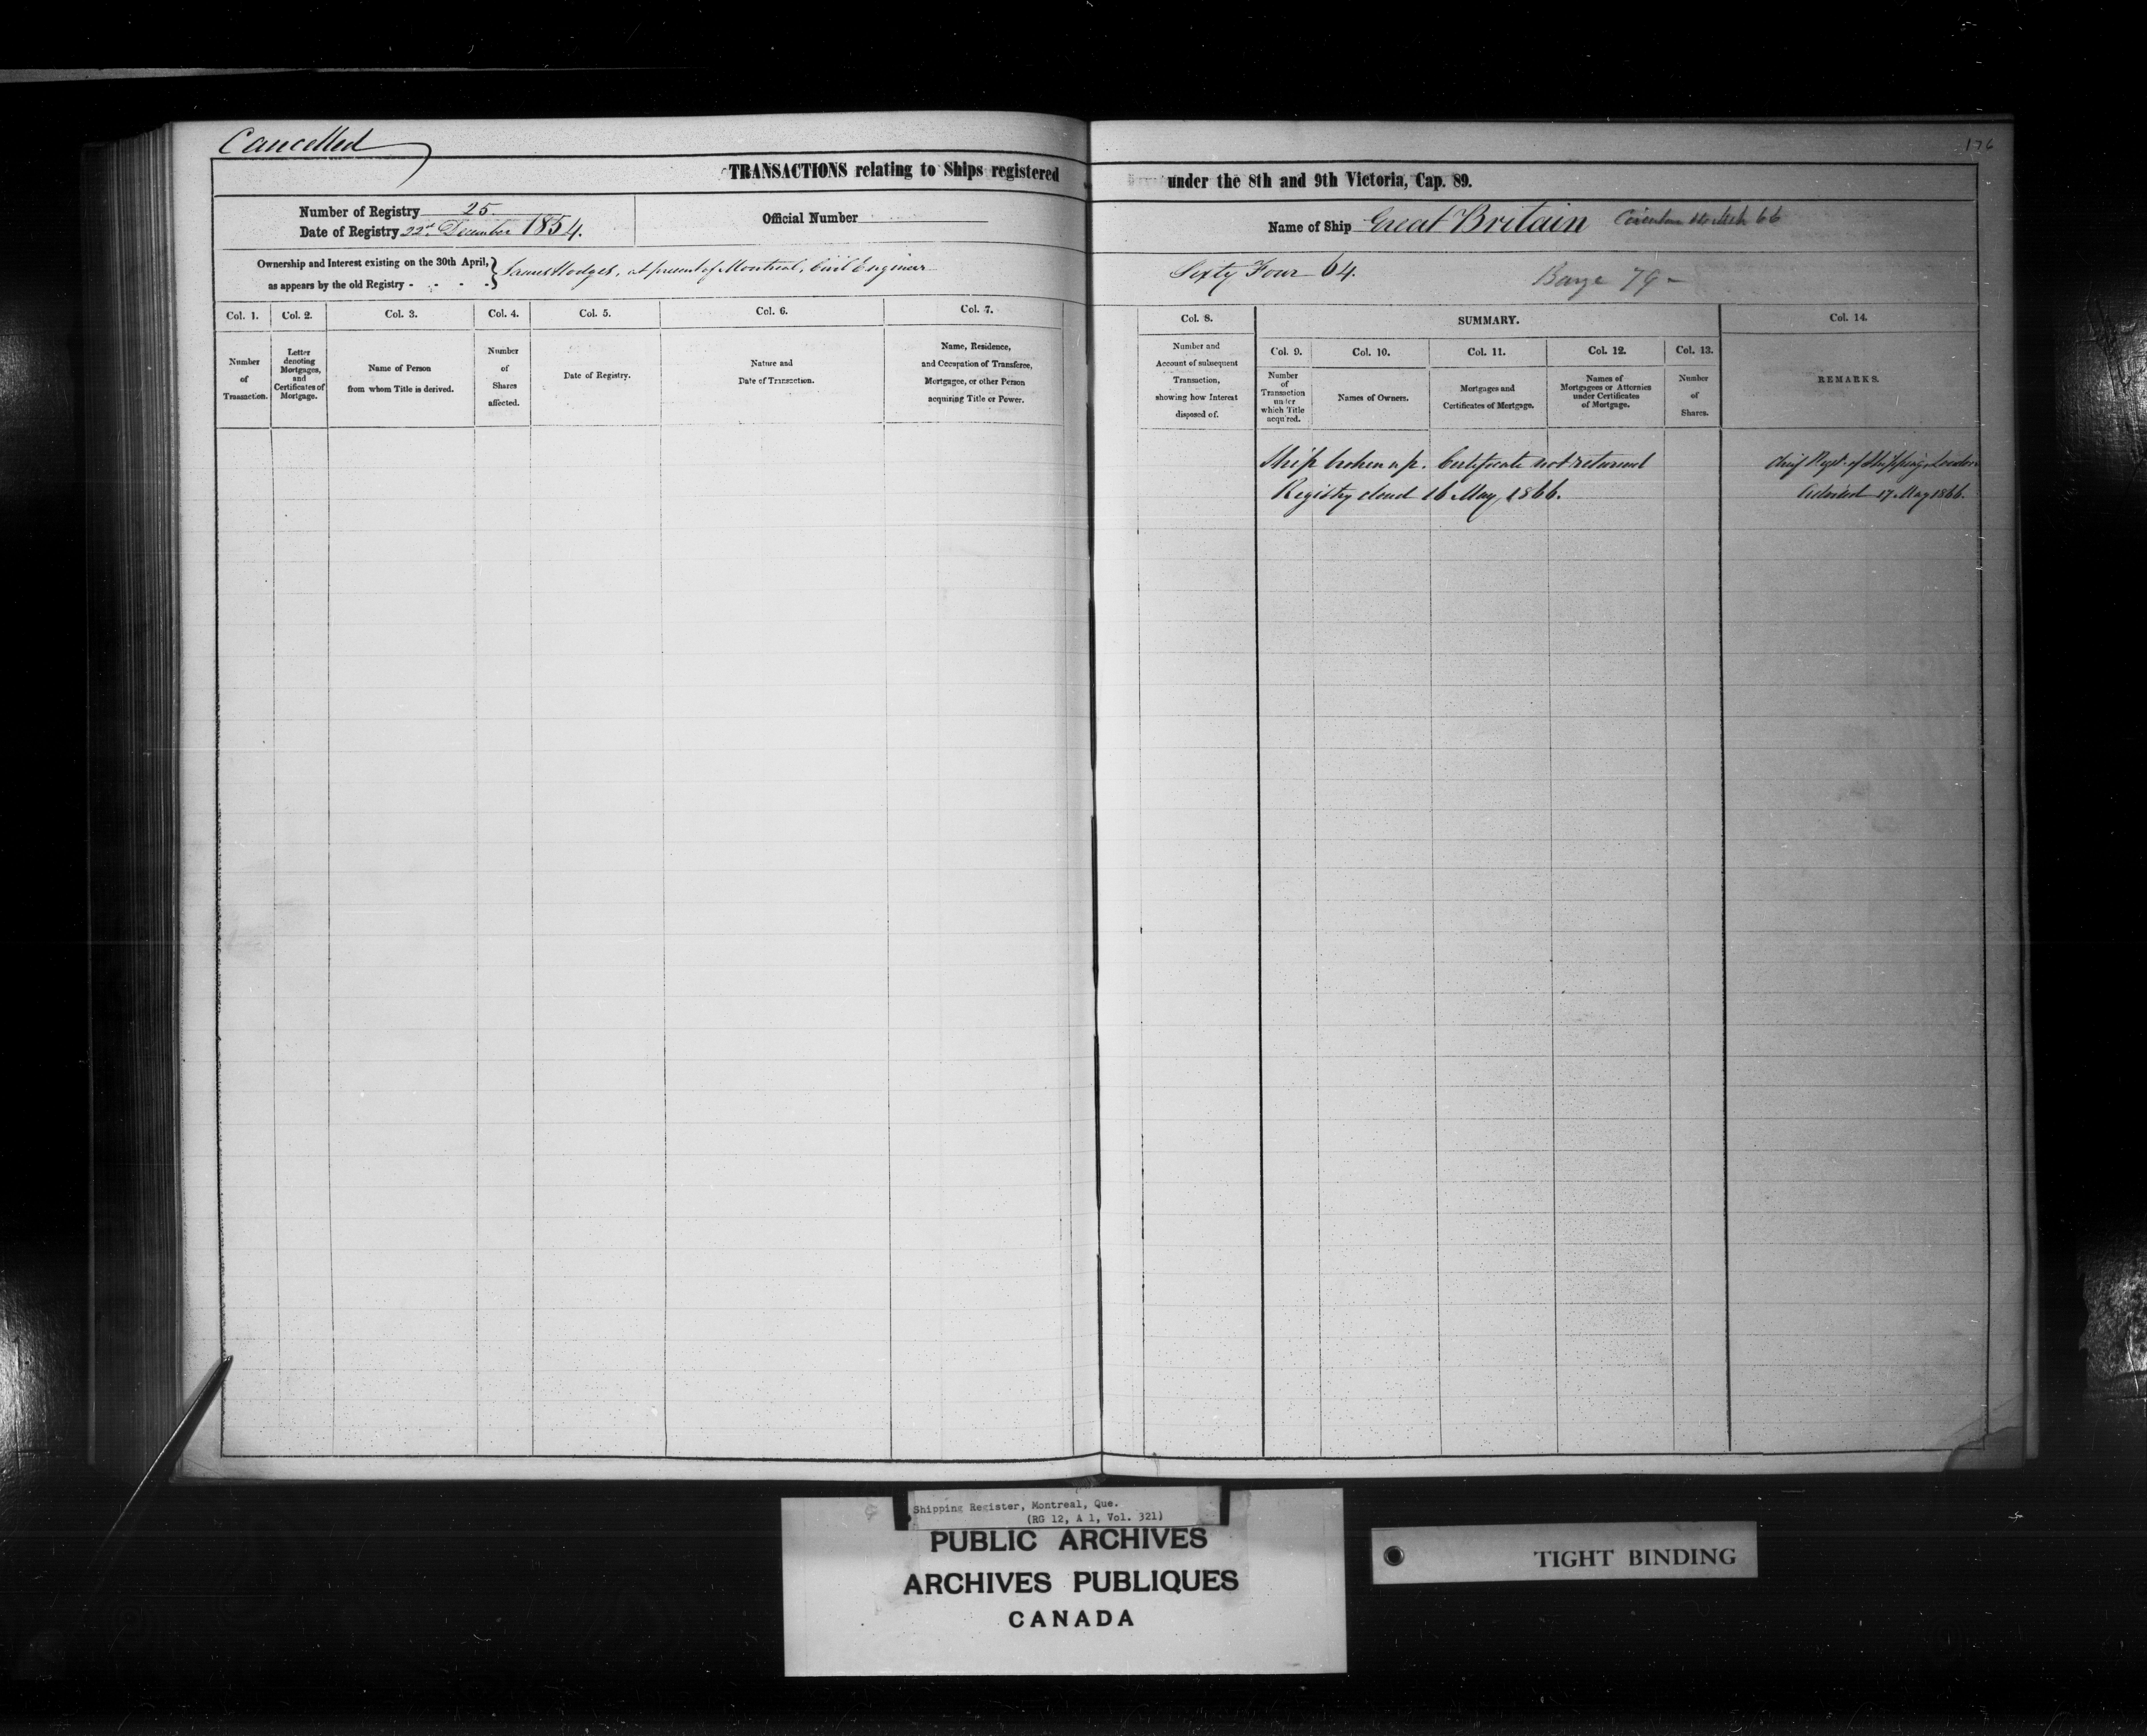 Cancelled
176
TRANSACTIONS relating to Ships registered under the 8th and 9th Victoria, Cap. 89.
Number of Registry 25.
Date of Registry 22nd December 1854.
Official Number
Name of Ship Great Britain Circular 66
Ownership and Interest existing on the 30th April,
as appears by the old Registry - - - -
James Hodges, at present of Montreal, Civil Engineer
Sixty Four 64.
Barge 79
Col. 1.
Col. 2.
Col. 3.
Col. 4.
Col. 5.
Col. 6.
Col. 7.
Col. 8.
SUMMARY.
Col. 14.
Col. 9.
Col. 10.
Col. 11.
Col. 12.
Col. 13.
Number
of
Transaction.
Letter
denoting
Mortgages,
and
Certificates of
Mortgage.
Name of Person
from whom Title is derived.
Number
of
Shares
affected.
Date of Registry.
Nature and
Date of Transaction.
Name, Residence,
and Occupation of Transferee,
Mortgagee, or other Person
acquiring Title or Power.
Number and
Account of subsequent
Transaction,
showing how Interest
disposed of.
Number
of
Transaction
under
which Title
acquired.
Names of Owners.
Mortgages and
Certificates of Mortgage.
Names of
Mortgagees or Attornies
under Certificates
of Mortgage.
Number
of
Shares.
REMARKS.
Ship broken up. Certificate not returned
Registry closed 16 May, 1866.
Chief Regr. of Shipping, London
Advised 17 May 1866.
Shipping Register, Montreal, Que.
(RG 12, A 1, Vol. 321)
PUBLIC ARCHIVES
ARCHIVES PUBLIQUES
CANADA
TIGHT BINDING